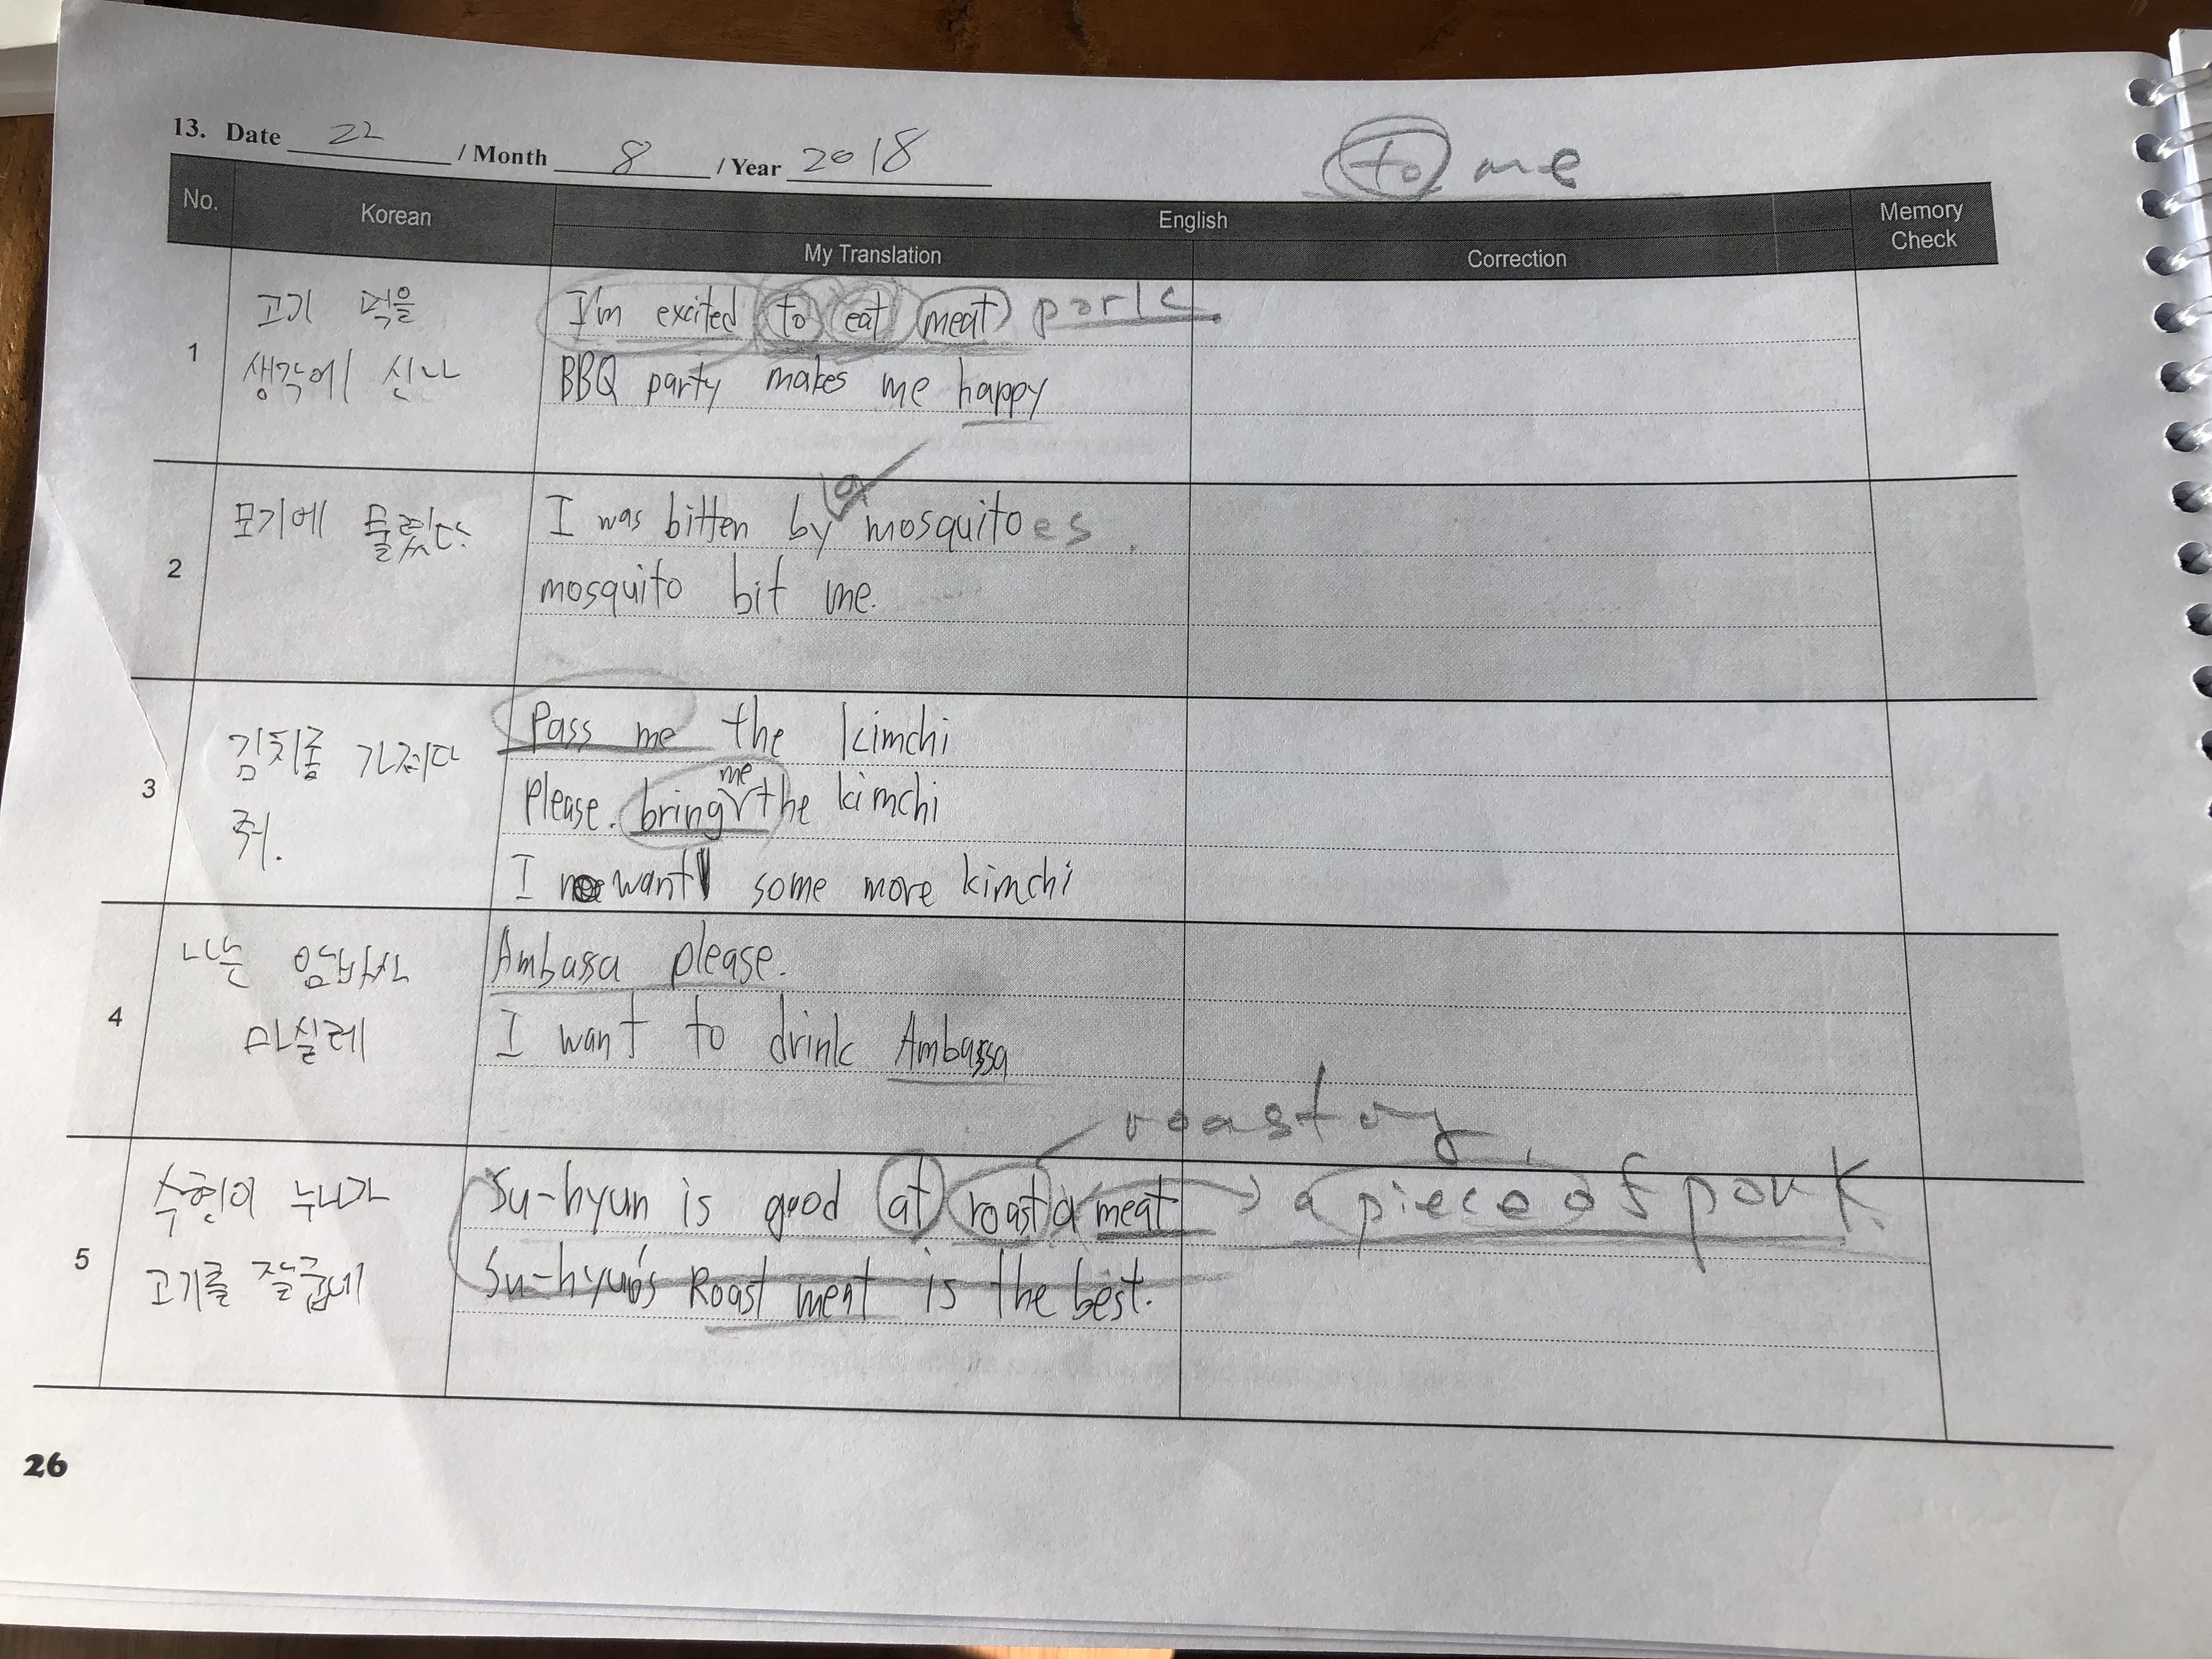 13. Date 22 / Month 8 / Year 2018
to me
No. Korean English Memory Check
My Translation Correction
1
고기 먹을
생각에 신나
I'm excited to eat meat pork.
BBQ party makes me happy
2
모기에 물렸다.
a
I was bitten by mosquitoes.
mosquito bit me.
3
김치좀 가져다
줘.
Pass me the kimchi
me
Please. bring the kimchi
I want some more kimchi
4
나는 암바사
마실레
Ambassa please.
I want to drink Ambassa
roasting
5
수현이 누나가
고기를 잘굽네
Su-hyun is good at roast a meat a piece of pork.
Su-hyun's Roast meat is the best.
26